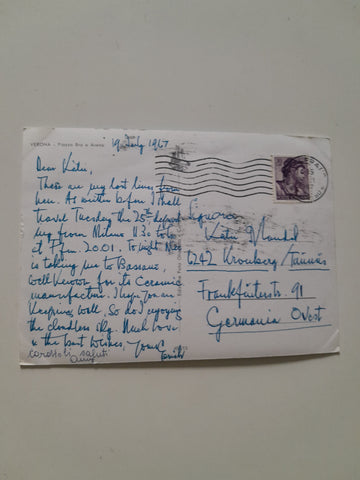 VERONA - Piazza Bra e Arena
19 July 1967
Dear Käti,
These are my last lines from
here. As written before I shall
travel Tuesday the 25th depart
ing from Milano 11.30 tot
at Ffm. 20.01. To night
is taking me to Bassano,
well known for its Ceramic
manufacture. I hope you are
keeping well, so do I enjoying
the cloudless sky. Much love
& the best wishes, Yours
carettoli saluti
Signora
Käti
6242 Kronberg/Taunus
Frankfurterstr. 91
Germania Ovest